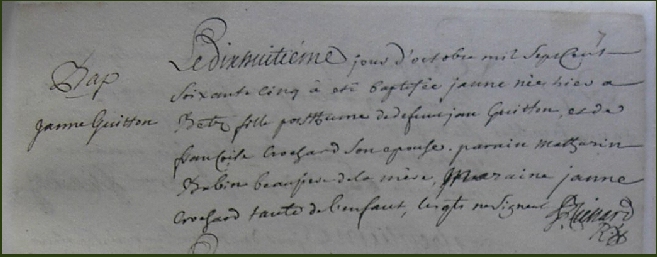 Bap
Janne Guitton
Le dixhuitiéme jour d'octobre mil sept cent
soixante cinq à eté baptisée janne née hier a
fille posthume de defunt jan Guitton, et de
françoise Crochard son epouse. parain Mathurin
Babin beaufrere de la mère, Maraine janne
Crochard tante de l'enfant, lesqls ne signent